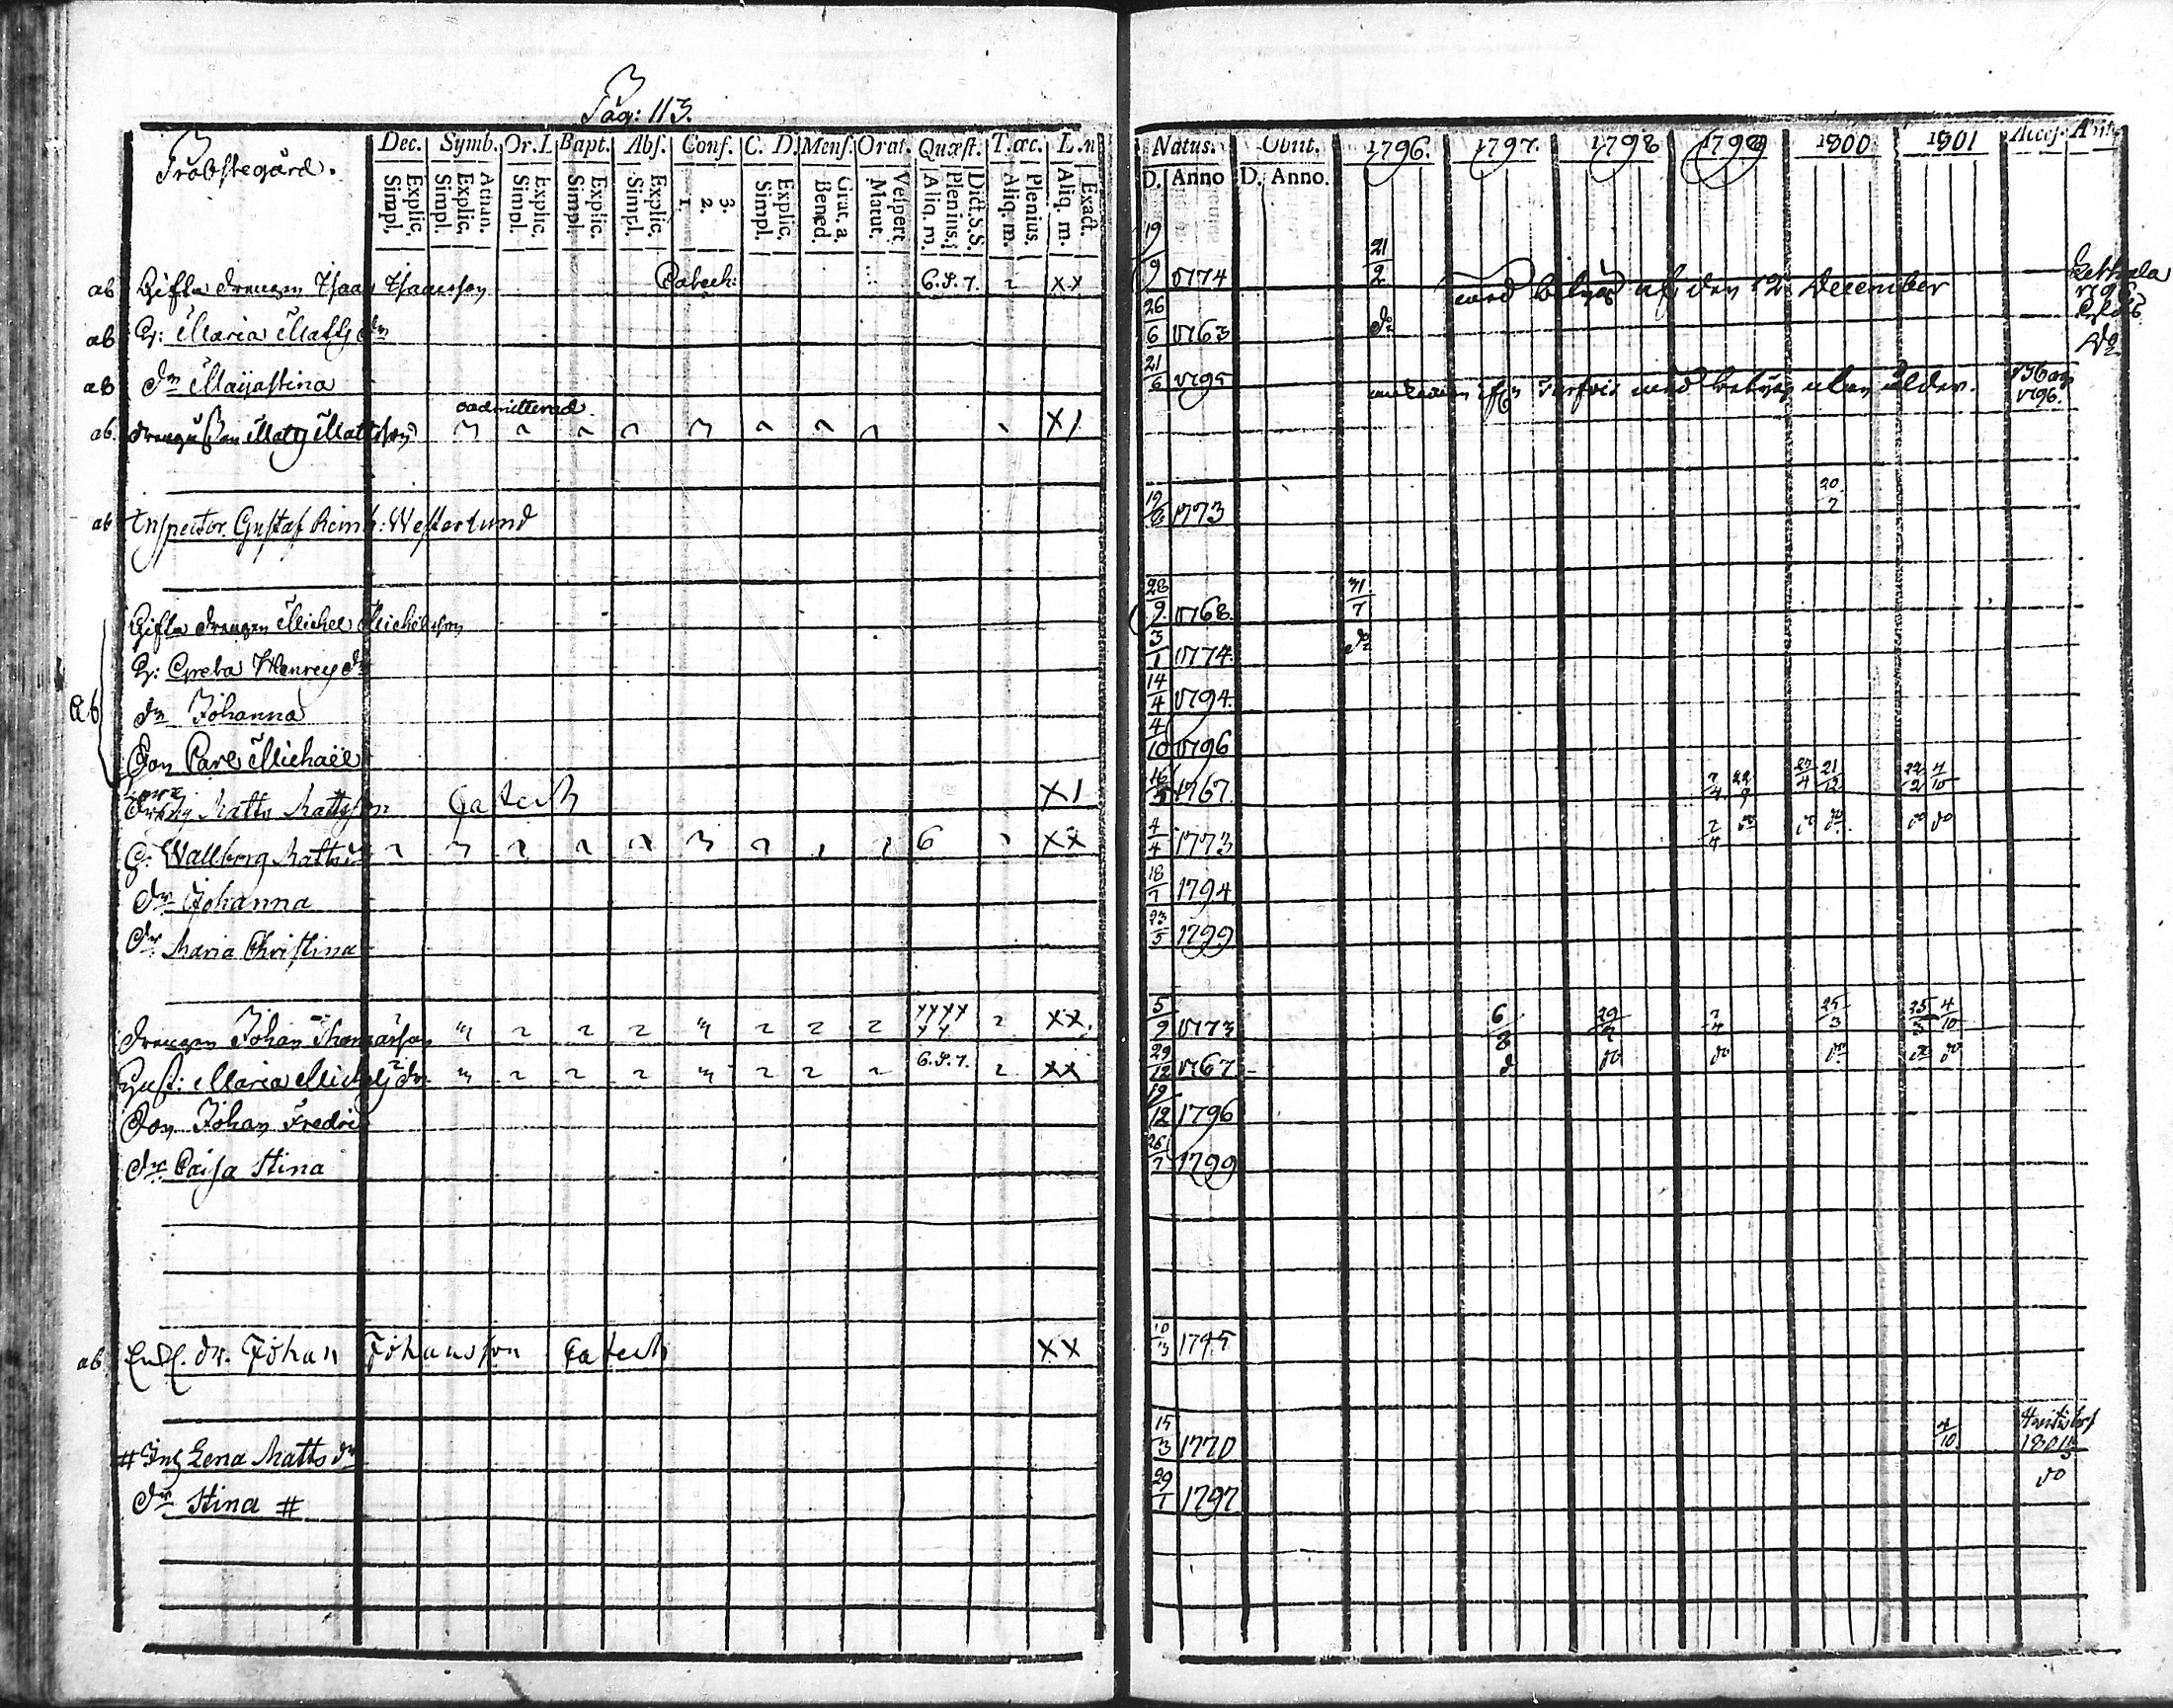 Pag: 113.
Probstegård.
Dec. Symb. Or. D. Bapt. Abs. Conf. C. D. Mens. Orat. Quæst. T. œc. L. n
Explic. Simpl. Athan. Explic. Simpl. Explic. Simpl. Explic. Simpl. Explic. Simpl. 3. 2. 1. Explic. Simpl. Grat. a. Bened. Vespert. Matut. Dict. S. S. Plenius. Aliq. m. Plenius. Aliq. m. Exact. Aliq. m.
Natus. Obiit. 1796. 1797. 1798 1799 1800 1801 Acces. Abit.
D. Anno D. Anno.
ab Gifta Drengen Isaac Isaacsson Catech: 6.S.7. XX 19/9 1774 21/2 med betyg af den 12 December
ab H: Maria Matts dr 26/6 1763 do do
ab dr Majastina 21/6 1795 med betyg utan ålder. 1796.
ab. Mats Mattsson oadmitterad X I
ab Inspector Gustaf Reinh: Westerlund 19/6 1773 20/7
ab Gifta Drengen Michel Michelsson 28/9 1768 31/7
H: Greta Henrics dr 3/1 1774 do
dr Johanna 14/4 1794
Son Carl Michael 4/10 1796
Dreng Matts Mattsson Catech X I 1767 2/4 22/9 27/4 21/12 22/2 4/10
H. Wallborg Matts dr 6 XX 4/4 1773 2/4 do do do do do
dr Johanna 18/7 1794
dr Maria Christina 23/5 1799
Drengen Johan Thomasson XXXX XX XX 5/9 1773 6/8 29/ 2/4 25/3 25/3 4/10
Hust: Maria Michels dr 6.S.7. XX 29/12 1767 do do do do do
Son Johan Fredric 19/12 1796
dr Caisa Stina 26/7 1799
ab Enkl. dr. Johan Johansson Catech XX 10/3 1745
# Lena Matts dr 15/3 1770 4/10 1801
dr Stina # 29/7 1797 do